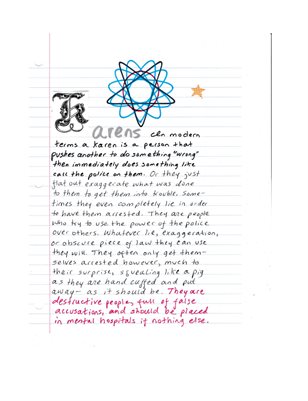 Karens (in modern
terms a karen is a person that
pushes another to do something "wrong"
then immediately does something like
call the police on them. Or they just
flat out exaggerate what was done
to them to get them into trouble. Some-
times they even completely lie in order
to have them arrested. They are people
who try to use the power of the police
over others. Whatever lie, exaggeration,
or obscure piece of law they can use
they will. They often only get them-
selves arrested however, much to
their surprise, squealing like a pig
as they are hand cuffed and put
away- as it should be. They are
destructive people, full of false
accusations, and should be placed
in mental hospitals if nothing else.